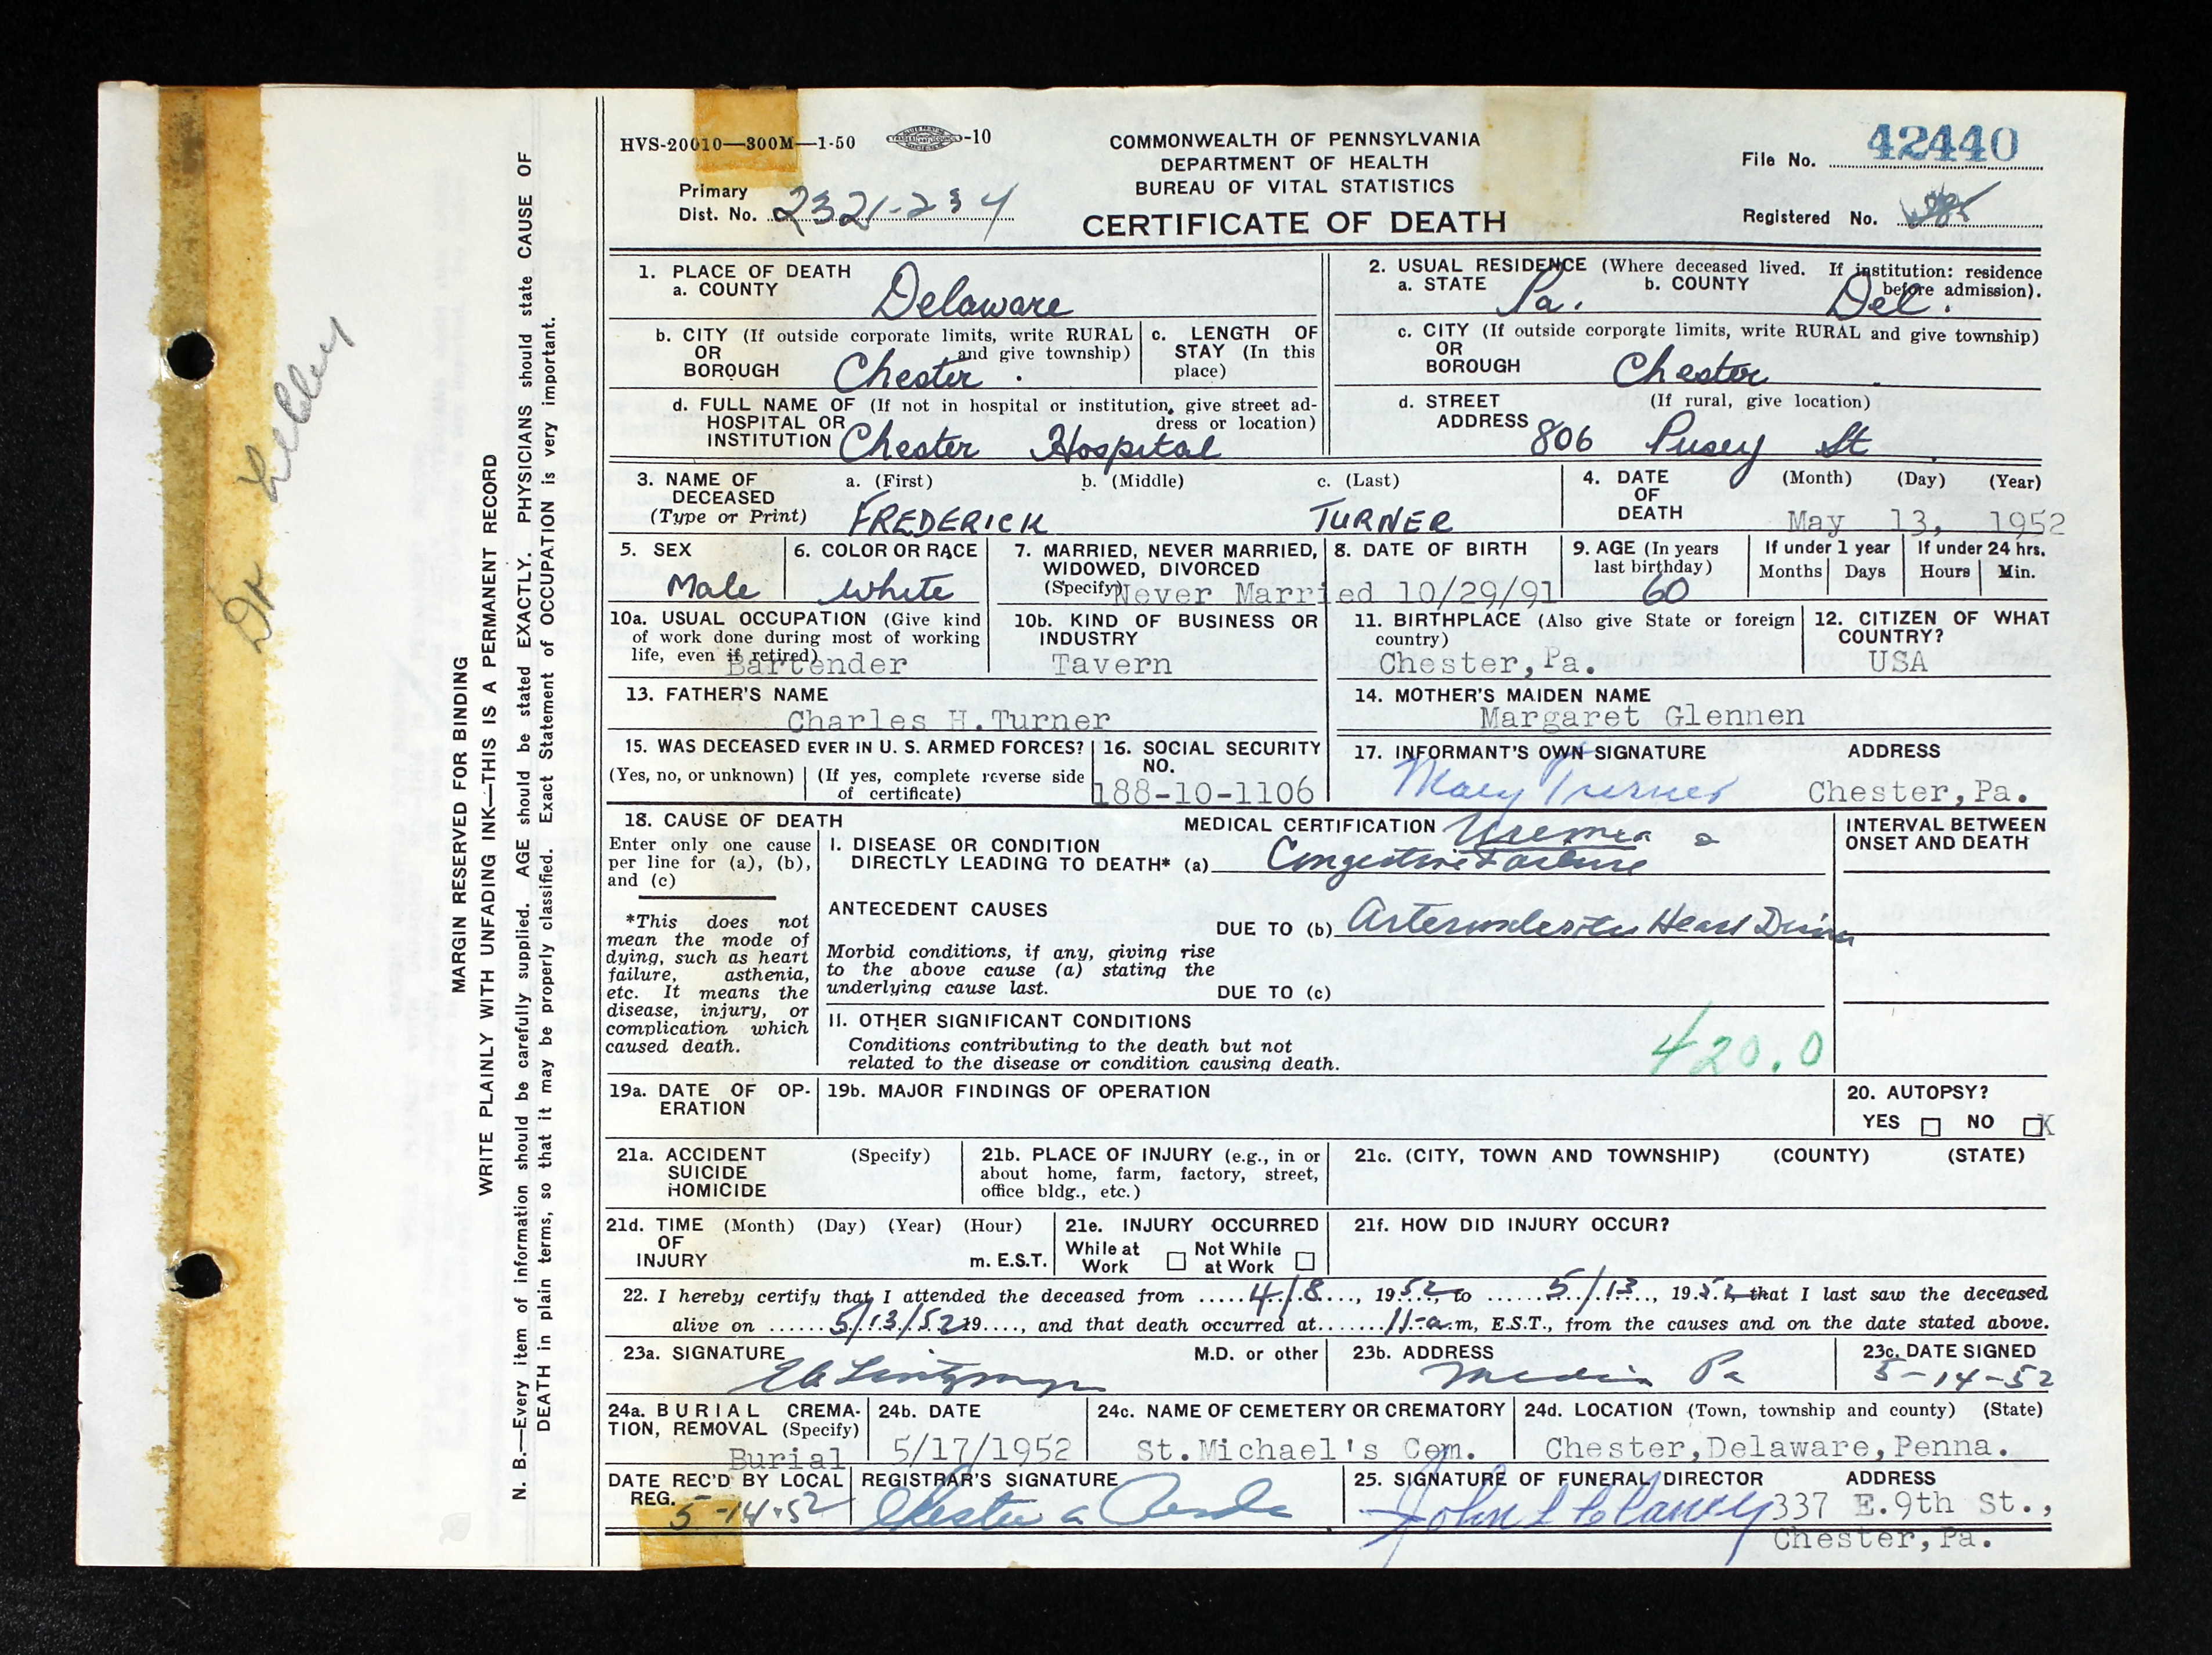 HVS-20010—300M—1-50 -10
COMMONWEALTH OF PENNSYLVANIA
DEPARTMENT OF HEALTH
BUREAU OF VITAL STATISTICS
CERTIFICATE OF DEATH
File No. 42440
Primary
Dist. No. 2321-234
Registered No.
1. PLACE OF DEATH
a. COUNTY Delaware
2. USUAL RESIDENCE (Where deceased lived. If institution: residence before admission).
a. STATE Pa. b. COUNTY Del.
b. CITY (If outside corporate limits, write RURAL
OR and give township)
BOROUGH Chester.
c. LENGTH OF
STAY (In this
place)
c. CITY (If outside corporate limits, write RURAL and give township)
OR
BOROUGH Chester
d. FULL NAME OF (If not in hospital or institution, give street ad-
HOSPITAL OR dress or location)
INSTITUTION Chester Hospital
d. STREET (If rural, give location)
ADDRESS 806 Pusey St
3. NAME OF a. (First) b. (Middle) c. (Last)
DECEASED
(Type or Print) FREDERICK TURNER
4. DATE (Month) (Day) (Year)
OF
DEATH May 13, 1952
5. SEX
Male
6. COLOR OR RACE
White
7. MARRIED, NEVER MARRIED,
WIDOWED, DIVORCED
(Specify) Never Married
8. DATE OF BIRTH
10/29/91
9. AGE (In years
last birthday)
60
If under 1 year
Months Days
If under 24 hrs.
Hours Min.
10a. USUAL OCCUPATION (Give kind
of work done during most of working
life, even if retired)
Bartender
10b. KIND OF BUSINESS OR
INDUSTRY
Tavern
11. BIRTHPLACE (Also give State or foreign
country)
Chester,Pa.
12. CITIZEN OF WHAT
COUNTRY?
USA
13. FATHER'S NAME
Charles H.Turner
14. MOTHER'S MAIDEN NAME
Margaret Glennen
15. WAS DECEASED EVER IN U. S. ARMED FORCES?
(Yes, no, or unknown) (If yes, complete reverse side
of certificate)
16. SOCIAL SECURITY
NO.
188-10-1106
17. INFORMANT'S OWN SIGNATURE ADDRESS
Mary Turner Chester,Pa.
18. CAUSE OF DEATH
Enter only one cause
per line for (a), (b),
and (c)
*This does not
mean the mode of
dying, such as heart
failure, asthenia,
etc. It means the
disease, injury, or
complication which
caused death.
MEDICAL CERTIFICATION Uremia
I. DISEASE OR CONDITION
DIRECTLY LEADING TO DEATH* (a) Congestive Failure
ANTECEDENT CAUSES
DUE TO (b) Heart
Morbid conditions, if any, giving rise
to the above cause (a) stating the
underlying cause last.
DUE TO (c)
INTERVAL BETWEEN
ONSET AND DEATH
II. OTHER SIGNIFICANT CONDITIONS
Conditions contributing to the death but not
related to the disease or condition causing death.
420.0
19a. DATE OF OP-
ERATION
19b. MAJOR FINDINGS OF OPERATION
20. AUTOPSY?
YES NO X
21a. ACCIDENT (Specify)
SUICIDE
HOMICIDE
21b. PLACE OF INJURY (e.g., in or
about home, farm, factory, street,
office bldg., etc.)
21c. (CITY, TOWN AND TOWNSHIP) (COUNTY) (STATE)
21d. TIME (Month) (Day) (Year) (Hour)
OF
INJURY m. E.S.T.
21e. INJURY OCCURRED
While at Not While
Work at Work
21f. HOW DID INJURY OCCUR?
22. I hereby certify that I attended the deceased from 4/8, 1952, to 5/13, 1952, that I last saw the deceased
alive on 5/13/52 19...., and that death occurred at 11-a.m, E.S.T., from the causes and on the date stated above.
23a. SIGNATURE M.D. or other
23b. ADDRESS
Media Pa
23c. DATE SIGNED
5-14-52
24a. BURIAL CREMA-
TION, REMOVAL (Specify)
Burial
24b. DATE
5/17/1952
24c. NAME OF CEMETERY OR CREMATORY
St.Michael's Cem.
24d. LOCATION (Town, township and county) (State)
Chester,Delaware,Penna.
DATE REC'D BY LOCAL
REG. 5-14-52
REGISTRAR'S SIGNATURE
Chester a
25. SIGNATURE OF FUNERAL DIRECTOR ADDRESS
John 337 E.9th St.,
Chester,Pa.
MARGIN RESERVED FOR BINDING
WRITE PLAINLY WITH UNFADING INK—THIS IS A PERMANENT RECORD
N. B.—Every item of information should be carefully supplied. AGE should be stated EXACTLY. PHYSICIANS should state CAUSE OF
DEATH in plain terms, so that it may be properly classified. Exact Statement of OCCUPATION is very important.
Dr